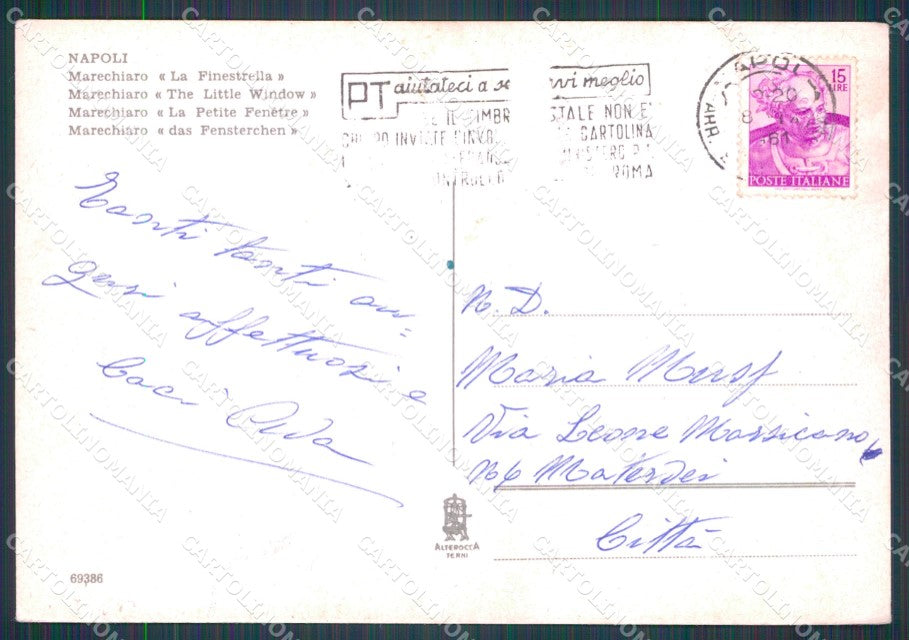 NAPOLI
Marechiaro « La Finestrella »
Marechiaro « The Little Window »
Marechiaro « La Petite Fenêtre »
Marechiaro « das Fensterchen »
PT aiutateci a vi meglio
IL TIMBR STALE NON E'
CARTOLINA
ROMA
NAPOLI
15
LIRE
POSTE ITALIANE
Tanti tanti au=
guri affettuosi e
baci
N. D.
Maria
Via Leone Marsicano,
N 6 Materdei
Città
ALTEROCCA
TERNI
69386
CARTOLINOMANIA